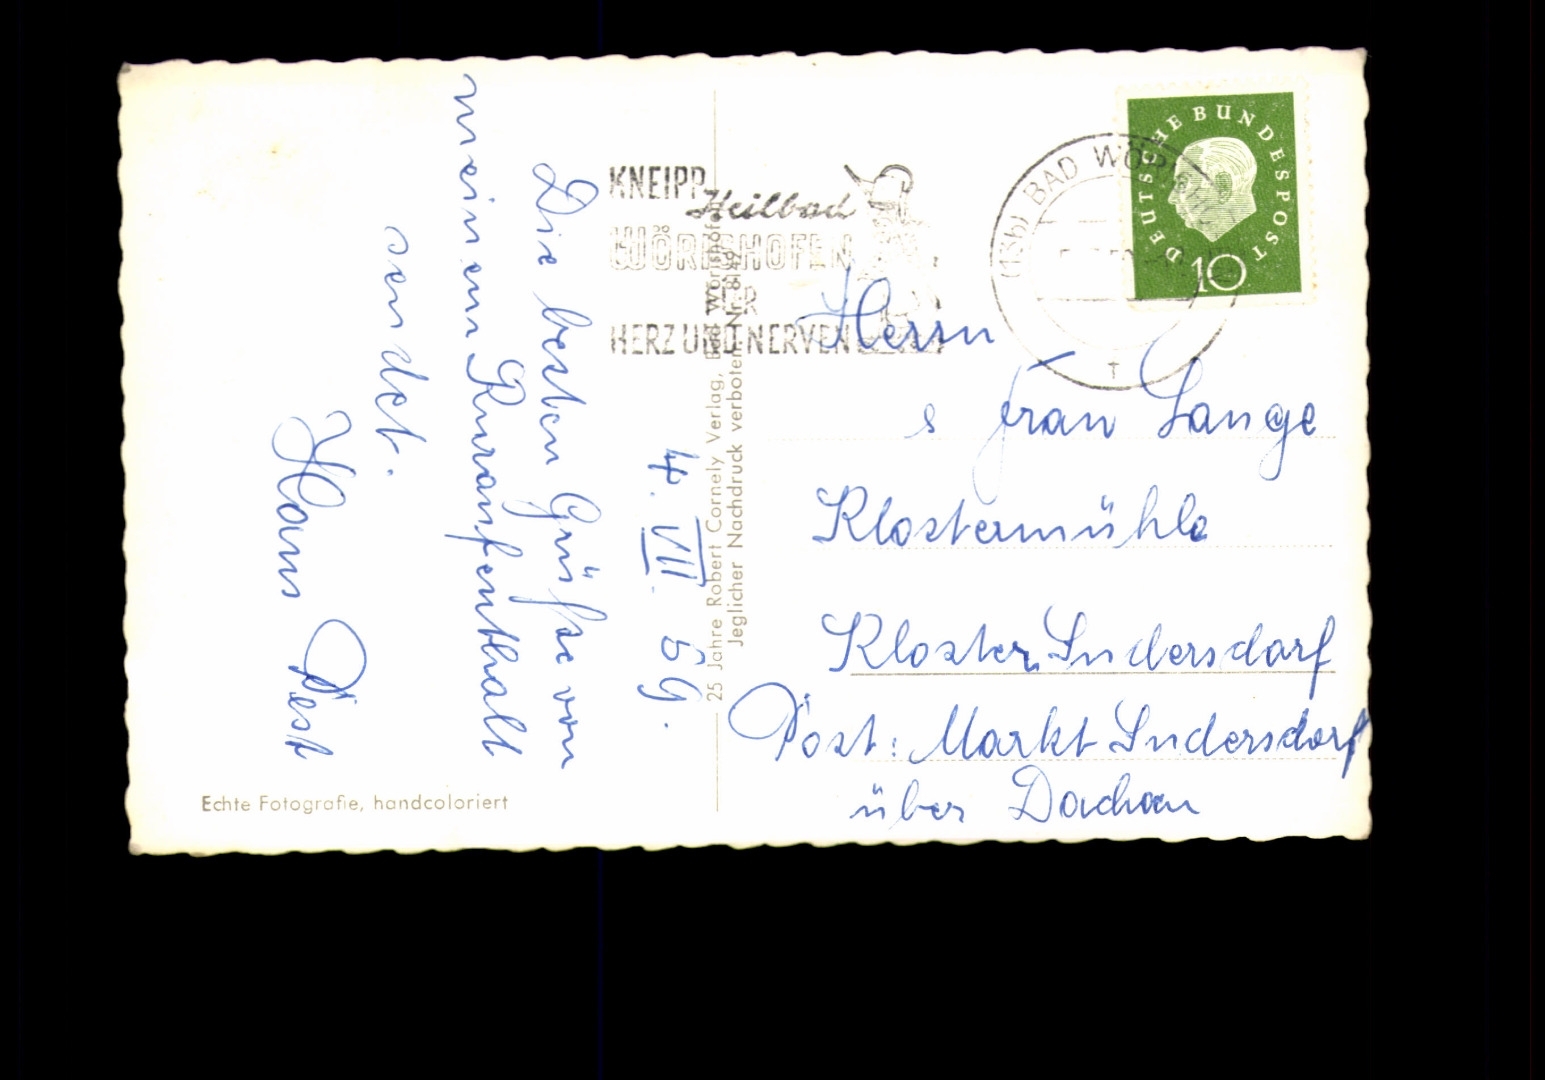 Die besten Grüße von
meinem Kuraufenthalt
sendet.
Hans Pest
4. VII. 59.
Echte Fotografie, handcoloriert
25 Jahre Robert Cornely Verlag, Bad Wörishofen
Jeglicher Nachdruck verboten Nr. 8149
KNEIPP
Heilbad
WÖRISHOFEN
FÜR
HERZ UND NERVEN
(13b) BAD WÖRISHOFEN
DEUTSCHE BUNDESPOST
10
Herrn
s Frau Lange
Klostermühle
Kloster Indersdorf
Post: Markt Indersdorf
über Dachau